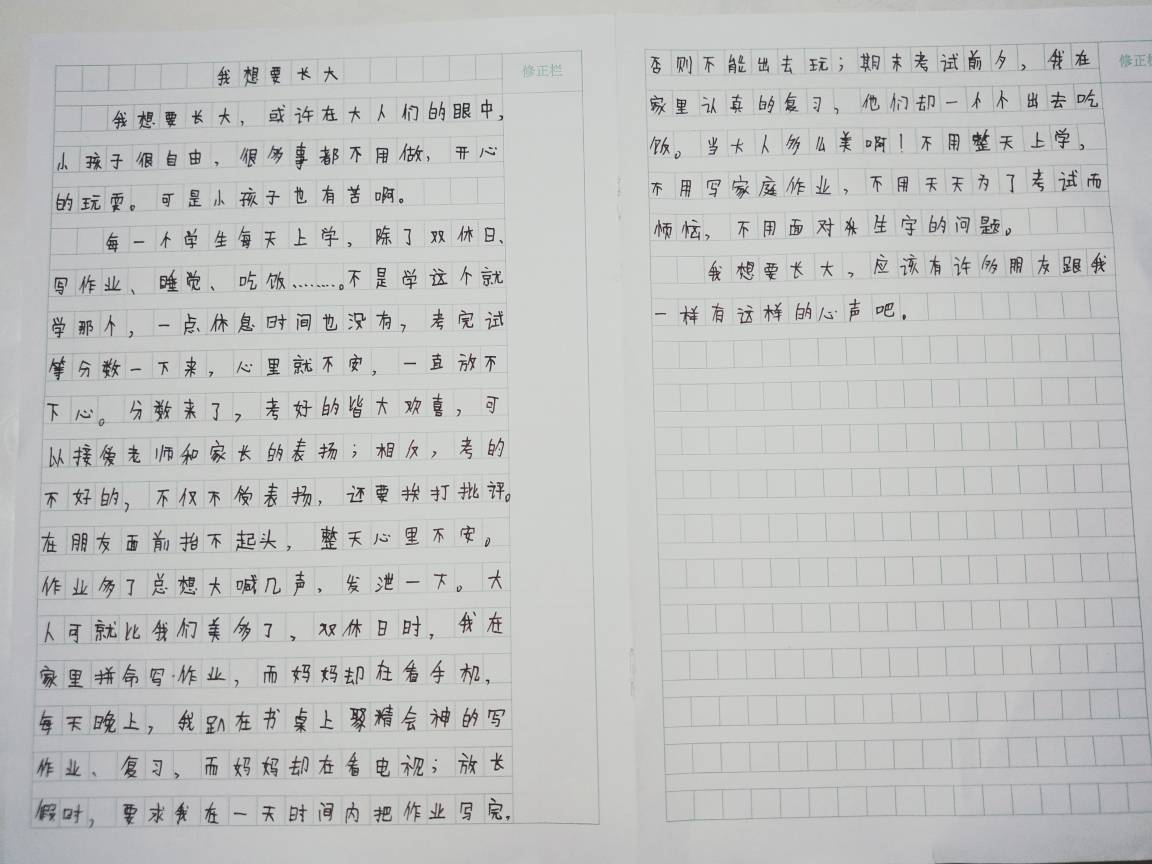 我想要长大
修正栏
我想要长大，或许在大人们的眼中，
小孩子很自由，很多事都不用做，开心
的玩耍。可是小孩子也有苦啊。
每一个学生每天上学，除了双休日、
写作业、睡觉、吃饭………。不是学这个就
学那个，一点休息时间也没有，考完试
等分数一下来，心里就不安，一直放不
下心。分数来了，考好的皆大欢喜，可
以接受老师和家长的表扬；相反，考的
不好的，不仅不受表扬，还要挨打批评。
在朋友面前抬不起头，整天心里不安。
作业多了总想大喊几声，发泄一下。大
人可就比我们美多了，双休日时，我在
家里拼命写作业，而妈妈却在看手机，
每天晚上，我趴在书桌上聚精会神的写
作业、复习，而妈妈却在看电视；放长
假时，要求我在一天时间内把作业写完，
否则不能出去玩；期末考试前夕，我在
修正
家里认真的复习，他们却一个个出去吃
饭。当大人多么美啊！不用整天上学，
不用写家庭作业，不用天天为了考试而
烦恼，不用面对生字的问题。
我想要长大，应该有许多朋友跟我
一样有这样的心声吧。